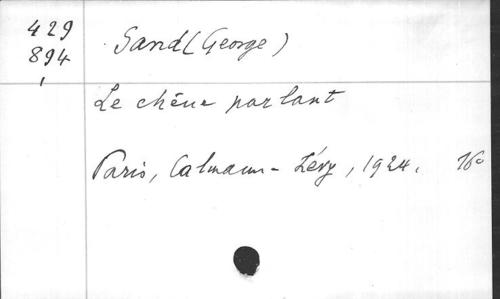 429
894
Sand (George)
Le chêne parlant
Paris, Calmann-Lévy, 1924. 16°